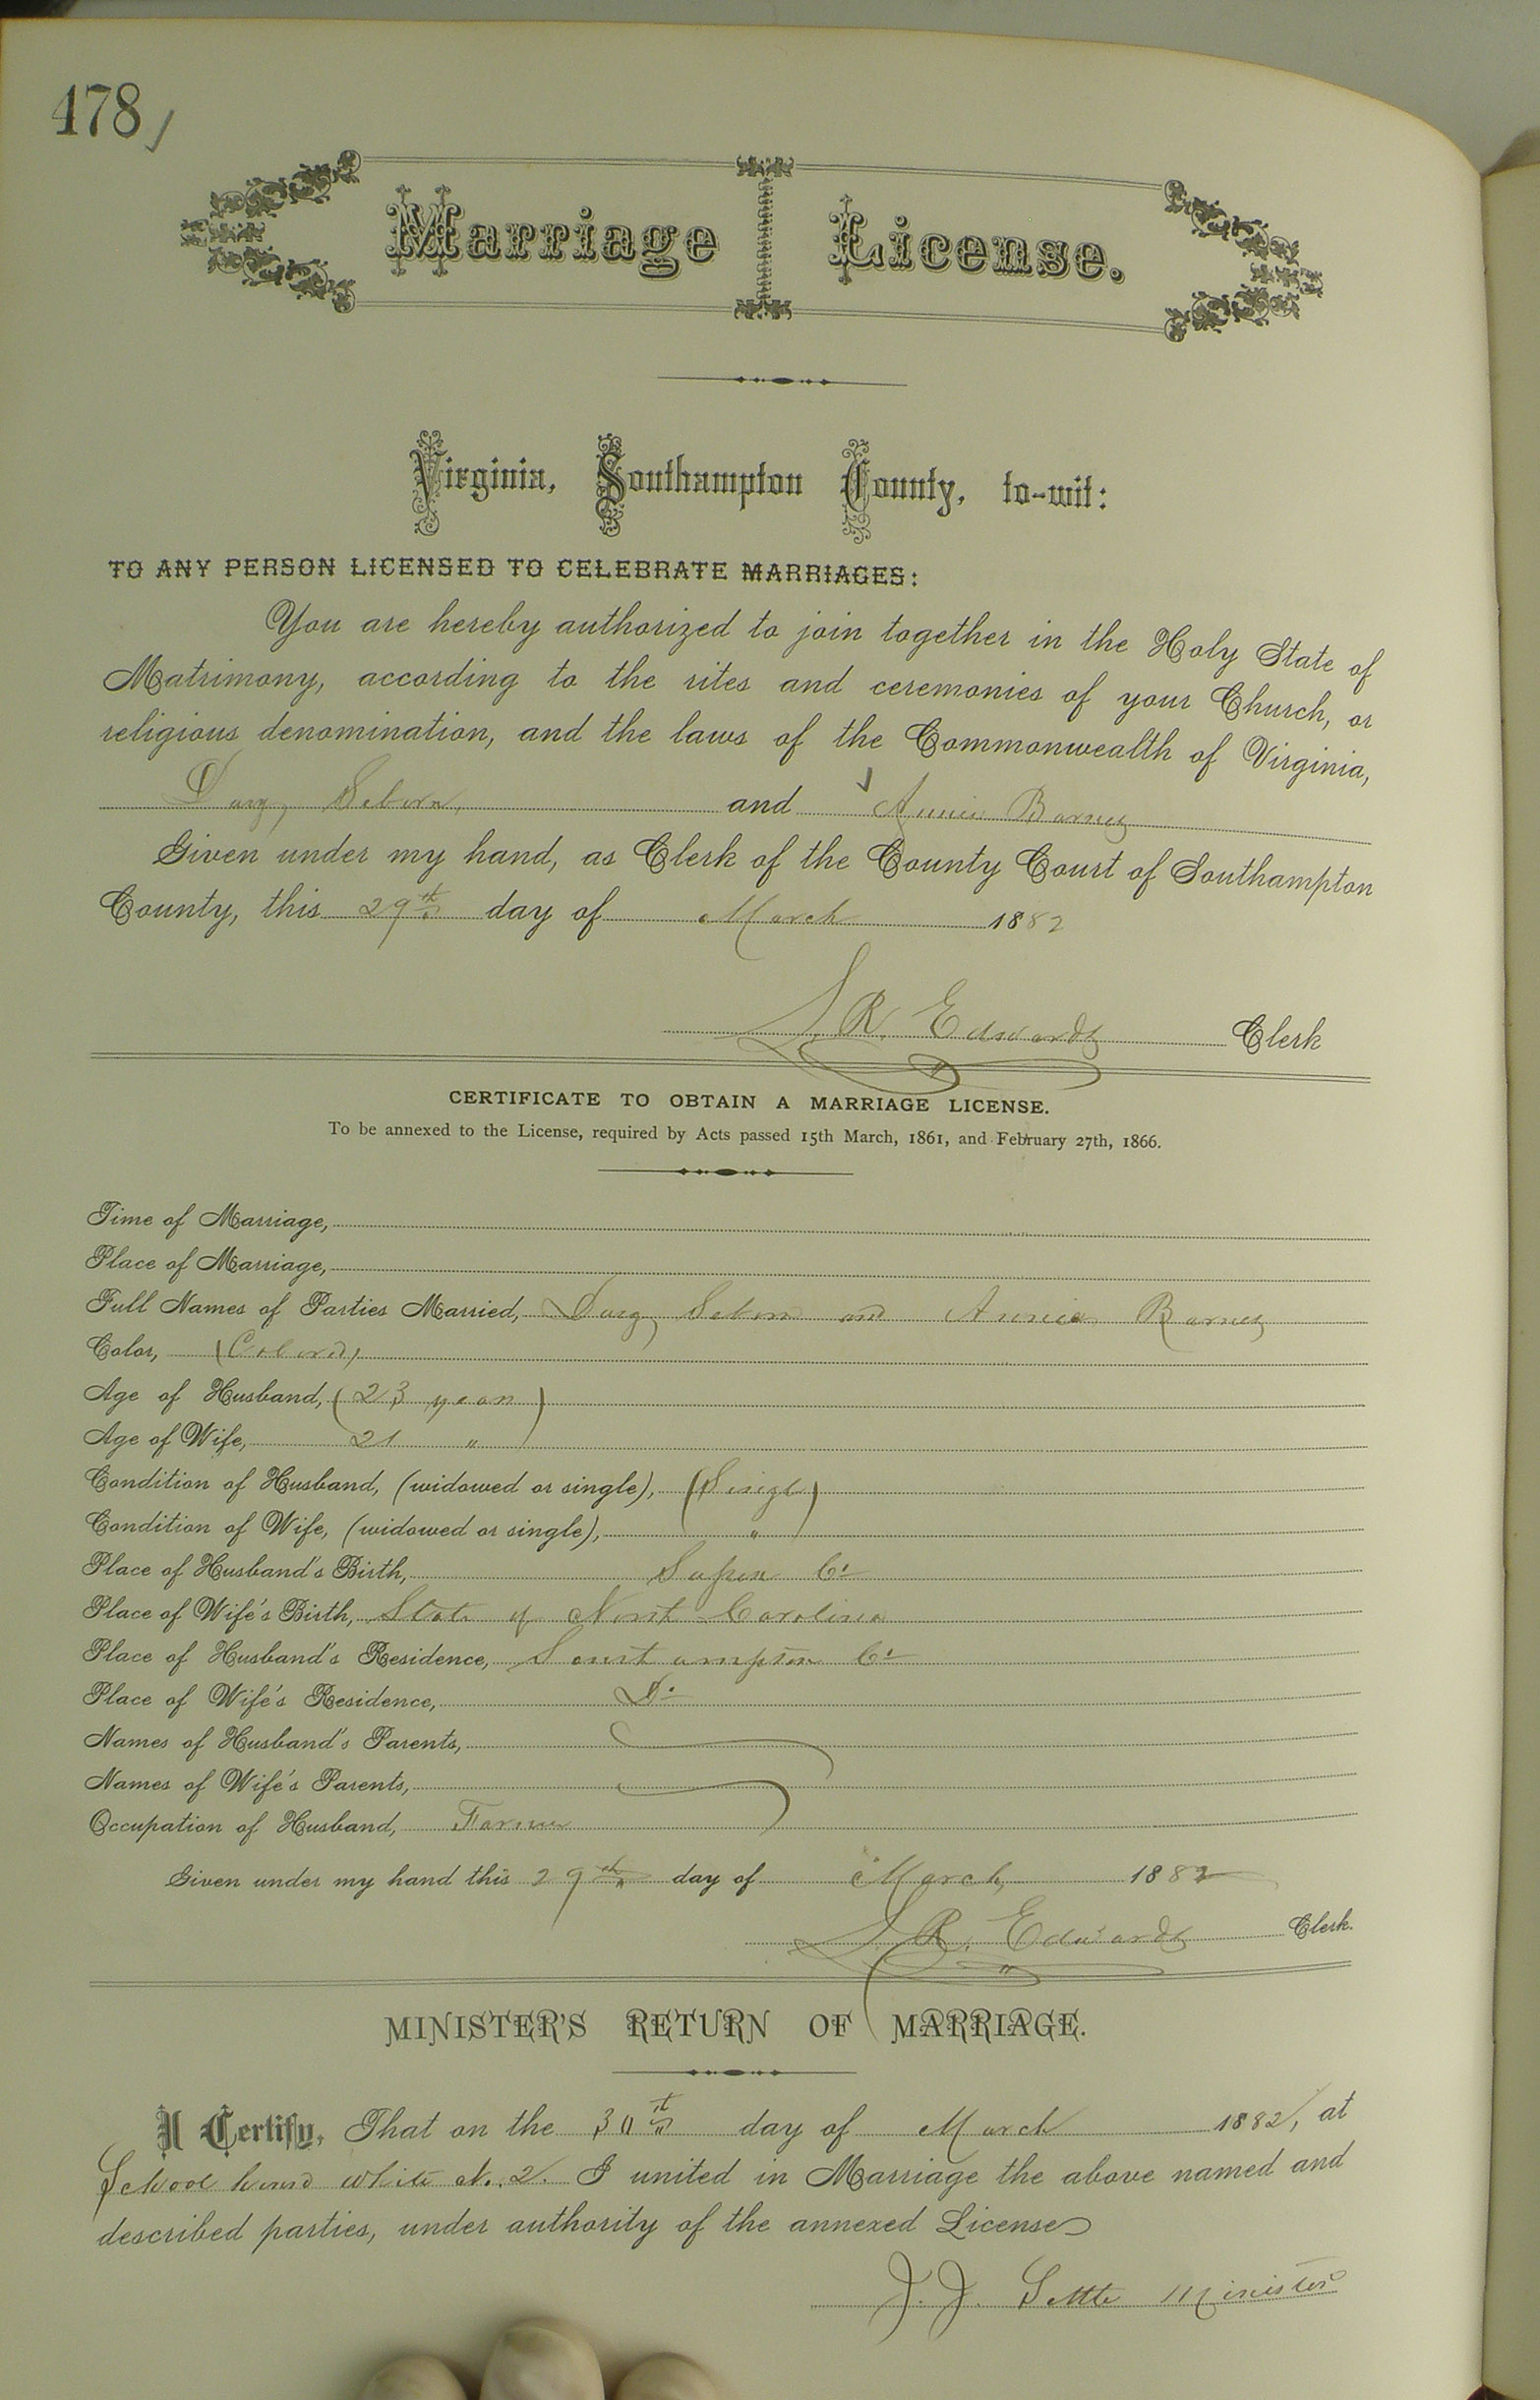 478
Marriage License.
Virginia, Southampton County, to-wit:
TO ANY PERSON LICENSED TO CELEBRATE MARRIAGES:
You are hereby authorized to join together in the Holy State of
Matrimony, according to the rites and ceremonies of your Church, or
religious denomination, and the laws of the Commonwealth of Virginia,
and Annie
Given under my hand, as Clerk of the County Court of Southampton
County, this 29th day of March 1882
L R. Edwards Clerk
CERTIFICATE TO OBTAIN A MARRIAGE LICENSE.
To be annexed to the License, required by Acts passed 15th March, 1861, and February 27th, 1866.
Time of Marriage,
Place of Marriage,
Full Names of Parties Married, and Annie
Color, (Colored)
Age of Husband, (23 years)
Age of Wife, 21 "
Condition of Husband, (widowed or single), (Single)
Condition of Wife, (widowed or single), "
Place of Husband's Birth, Co
Place of Wife's Birth, State of North Carolina
Place of Husband's Residence, Southampton Co
Place of Wife's Residence, Do
Names of Husband's Parents,
Names of Wife's Parents,
Occupation of Husband, Farmer
Given under my hand this 29th day of March, 1882
L R. Edwards Clerk.
MINISTER'S RETURN OF MARRIAGE.
I Certify, That on the 30th day of March 1882, at
School house white No. 2. I united in Marriage the above named and
described parties, under authority of the annexed License
J. J. Settle Minister